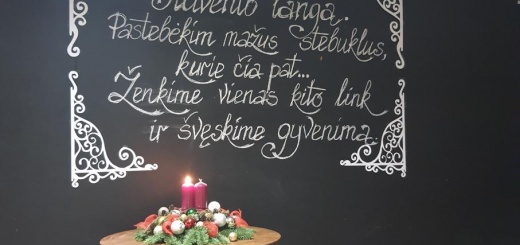 langą.
Pastebėkim mažus stebuklus,
kurie čia pat...
Ženkime vienas kito link
ir švęskime gyvenimą.